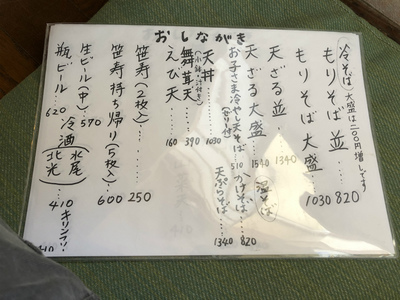 おしながき
冷そば 大盛は二〇〇円増しです
もりそば並 … 820
もりそば大盛 1030
天ざる並 … 1340
天ざる大盛 … 1540
温そば
お子さま冷やし天そば … 510
かけそば … 820
天ぷらそば … 1340
天丼 … 1030
舞茸天 … 390
えび天 … 160
笹寿(2枚入) … 250
笹寿持ち帰り(5枚入) … 600
生ビール(中) 570
冷酒(水尾 北光) … 410
瓶ビール … 620
キリンフリー